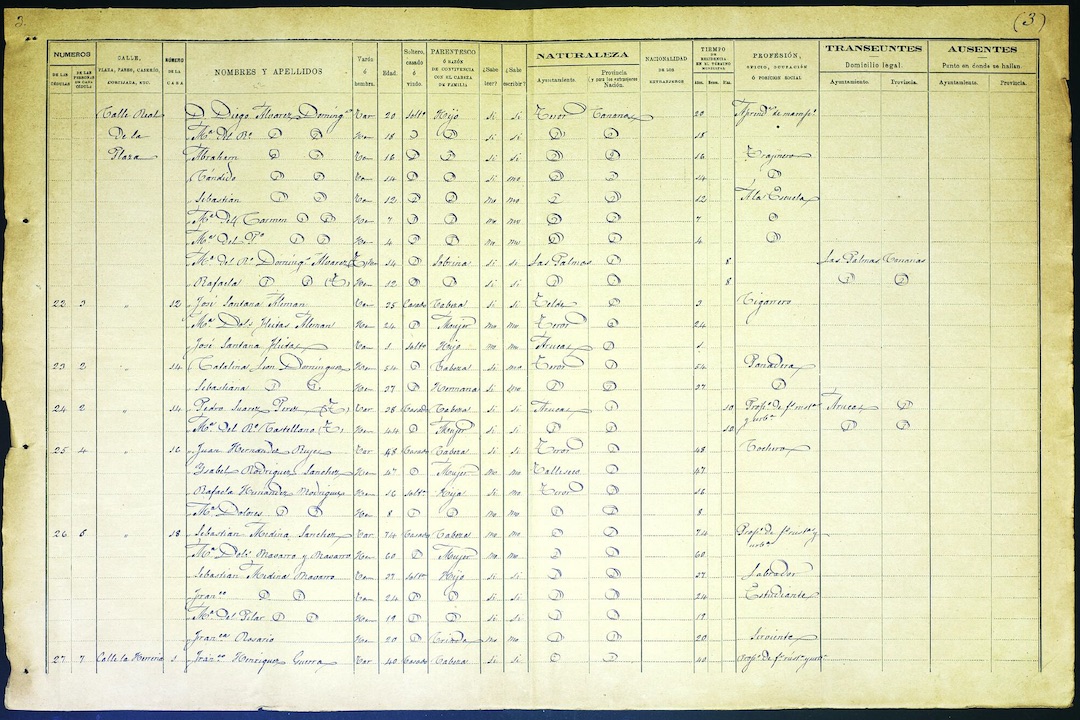 3.
(3)
NUMEROS
DE LAS CÉDULAS
DE LAS PERSONAS EN CADA CÉDULA
CALLE, PLAZA, PASEO, CASERÍO,
NÚMERO DE LA CASA
NOMBRES Y APELLIDOS
Varón ó hembra.
Edad.
Soltero, casado ó viudo.
PARENTESCO Ó RAZÓN DE CONVIVENCIA CON EL CABEZA DE FAMILIA
¿Sabe leer?
¿Sabe escribir?
NATURALEZA
Ayuntamiento.
Provincia y para los extranjeros Nación.
NACIONALIDAD DE LOS EXTRANJEROS
TIEMPO DE RESIDENCIA EN EL TÉRMINO MUNICIPAL
PROFESIÓN, OFICIO, OCUPACIÓN Ó POSICIÓN SOCIAL
TRANSEUNTES
Domicilio legal.
Ayuntamiento. Provincia.
AUSENTES
Punto en donde se hallan.
Ayuntamiento. Provincia.
Calle Real D. Diego Alvarez Doming.z Var 20 Solt.o Hijo si si Teror Canarias 20
De la M.a del R.o D D 18 D D si si D D 18
Plaza Abraham D D Va 16 D D si si D D 16 Trajinero
Candido D D Va 14 D D si no D D 14 D
Sebastian D D Va 12 D D no no D D 12 A la Escuela
M.a del Carmen D D He 7 D D no no D D 7 D
M.a del P.o D D He 4 D D no no D D 4 D
M.a del R.o Doming.z Alvarez (T) 14 D Sobrina si si Las Palmas D 8 Las Palmas Canarias
Rafaela D D (T) He 12 D D si si D D 8 D D
22 3 " 12 José Santana Aleman Va 25 Casado Cabeza si si Telde D 3
M.a Dol.s Aleman He 24 D Mujer no no Teror D 24
José Santana Va 1 Solt.o Hijo no no Arucas D 1
23 2 " 14 Catalina Leon Dominguez He 54 D Cabeza si no Teror D 54 Panadera
Sebastiana D D He 37 D Hermana si no D D 37 D
24 2 " 14 Pedro Suarez Perez (T) Var 28 Casado Cabeza si si Arucas D 10 Prop.o de f.a rust.a y urb.a Arucas D
M.a del R.o Castellano (T) He 44 D Mujer si si D D 10 D D
25 4 " 16 Juan Hernandez Var 48 Casado Cabeza si si Teror D 48 Cochero
Ysabel Rodriguez Sanchez He 47 D Mujer no no D 47
Rafaela Hernandez Rodriguez He 16 Solt.a Hija si no Teror D 16
M.a Dolores D D He 8 D D no no D D 8
26 5 " 18 Sebastian Medina Sanchez Var 74 Casado Cabeza no no D D 74 Prop.o de f.a rust.a y urb.a
M.a Dol.s Navarro y Navarro He 60 D Mujer no no D D 60
Sebastian Medina Navarro Va 37 Solt.o Hijo si si D D 37 Labrador
Fran.co D D Va 24 D D si si D D 24 Estudiante
M.a del Pilar D D He 19 D D si si D D 19
Fran.ca Rosario He 20 D Criada no no D D 20 Sirviente
27 7 Calle la Herreria 1 Fran.co Henriquez Guerra Var 40 Casado Cabeza si si D D 40 Prop.o de f.a rust.a y urb.a